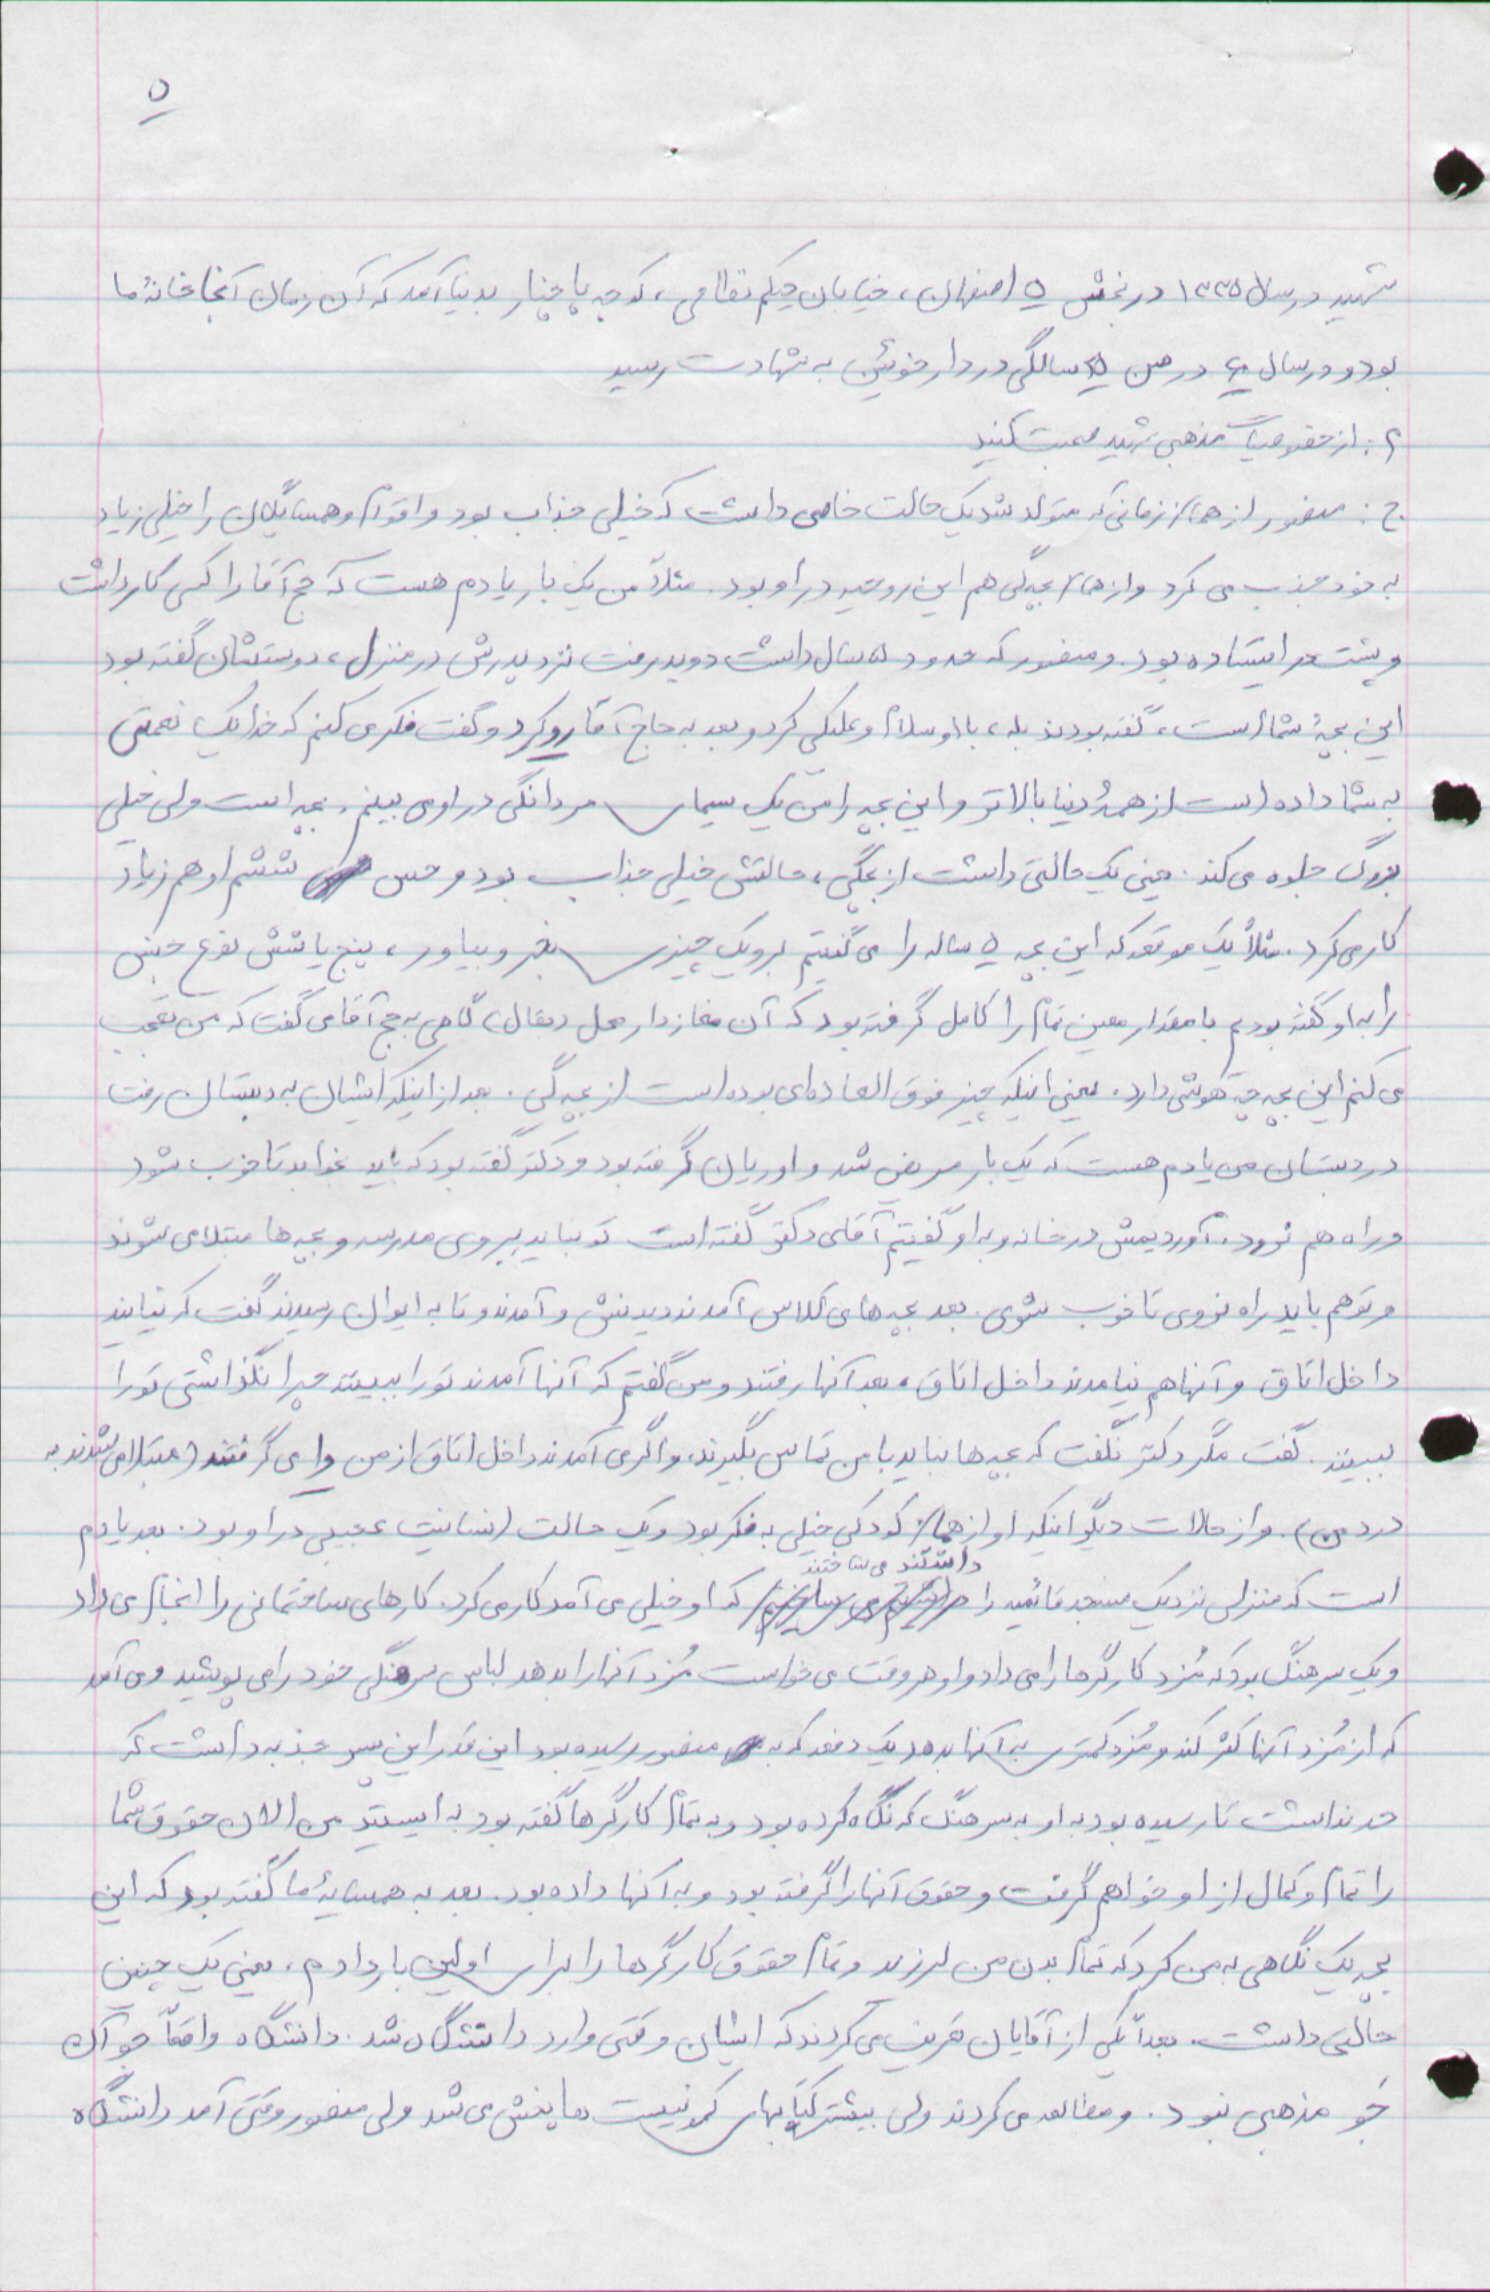 ۵
شهید در سال ۱۳۳۵ در بخش ۵ اصفهان، خیابان حکیم نظامی، کوچه پاچنار بدنیا آمد که آن زمان آنجا خانهٔ ما
بود و در سال ۶۰ در سن ۲۵ سالگی در دارخوئین به شهادت رسید
۲: از خصوصیات مذهبی شهید صحبت کنید
ج: منصور از همان زمانی که متولد شد یک حالت خاصی داشت که خیلی جذاب بود و اقوام و همسایگان را خیلی زیاد
به خود جذب می کرد و از همان بچه گی هم این روحیه در او بود. مثلاً من یک بار یادم هست که حج آقا را کسی کار داشت
و پشت در ایستاده بود. و منصور که حدود ۵ سال داشت دوید رفت نزد پدرش در منزل، دوستشان گفته بود
این بچهٔ شما است، گفته بودند بله، با او سلام و علیکی کرد و بعد به حاج آقا رو کرد و گفت فکر می کنم که خدا یک نعمتی
به شما داده است از همهٔ دنیا بالاتر و این بچه را من یک سیمای مردانگی در او می بینم. بچه است ولی خیلی
بزرگ جلوه می کند. یعنی یک حالتی داشت از بچگی، حالتش خیلی جذاب بود و حس ششم او هم زیاد
کار می کرد. مثلاً یک موقعه که این بچه ۵ ساله را می گفتیم برو یک چیزی بخر و بیاور، پنج یا شش نوع جنس
را به او گفته بودم با مقدار معین تمام را کامل گرفته بود که آن مغازدار محل (بقال) گاهی به حج آقا می گفت که من تعجب
می کنم این بچه چه هوشی دارد. یعنی اینکه چیز فوق العاده ای بوده است از بچه گی. بعد از اینکه ایشان به دبستان رفت
در دبستان من یادم هست که یک بار مریض شد و اوریان گرفته بود و دکتر گفته بود که باید بخوابد تا خوب شود
و راه هم نرود. آوردیمش در خانه و به او گفتیم آقای دکتر گفته است تو نباید بروی مدرسه و بچه ها مبتلا می شوند
و تو هم باید راه نروی تا خوب شوی. بعد بچه های کلاس آمدند دیدنش و آمدند و تا به ایوان رسیدند گفت که نیایند
داخل اتاق و آنها هم نیامدند داخل اتاق. بعد آنها رفتند و من گفتم که آنها آمدند تو را ببینند چرا نگذاشتی تو را
ببینند. گفت مگر دکتر نگفت که بچه ها نباید با من تماس بگیرند، و اگر می آمدند داخل اتاق از من وا می گرفتند (مبتلا می شدند به
درد من). و از حالات دیگر اینکه او از همان کودکی خیلی به فکر بود و یک حالت انسانیت عجیبی در او بود. بعد یادم
است که منزلی نزدیک مسجد قائمیه را داشتند می ساختند که او خیلی می آمد کار می کرد. کارهای ساختمانی را انجام می داد
و یک سرهنگ بود که مُزد کارگرها را می داد و او هر وقت می خواست مُزد آنها را بدهد لباس سرهنگی خود را می پوشید و می آمد
که از مُزد آنها کثر کند و مُزد کمتری به آنها بدهد یک دفعه که به منصور رسیده بود این قدر این پسر جذبه داشت که
حد نداشت تا رسیده بود به او به سرهنگ که نگاه کرده بود و به تمام کارگرها گفته بود به ایستید من الان حقوق شما
را تمام و کمال از او خواهم گرفت و حقوق آنها را گرفته بود و به آنها داده بود. بعد به همسایهٔ ما گفته بود که این
بچه یک نگاهی به من کرد که تمام بدن من لرزید و تمام حقوق کارگرها را برای اولین بار دادم، یعنی یک چنین
حالتی داشت. بعداً یکی از آقایان تعریف می کردند که ایشان وقتی وارد دانشگاه شد. دانشگاه واقعاً جو آن
جَو مذهبی نبود. و مطالعه می کردند ولی بیشتر کتابهای کمونیست ها پخش می شد ولی منصور وقتی آمد دانشگاه